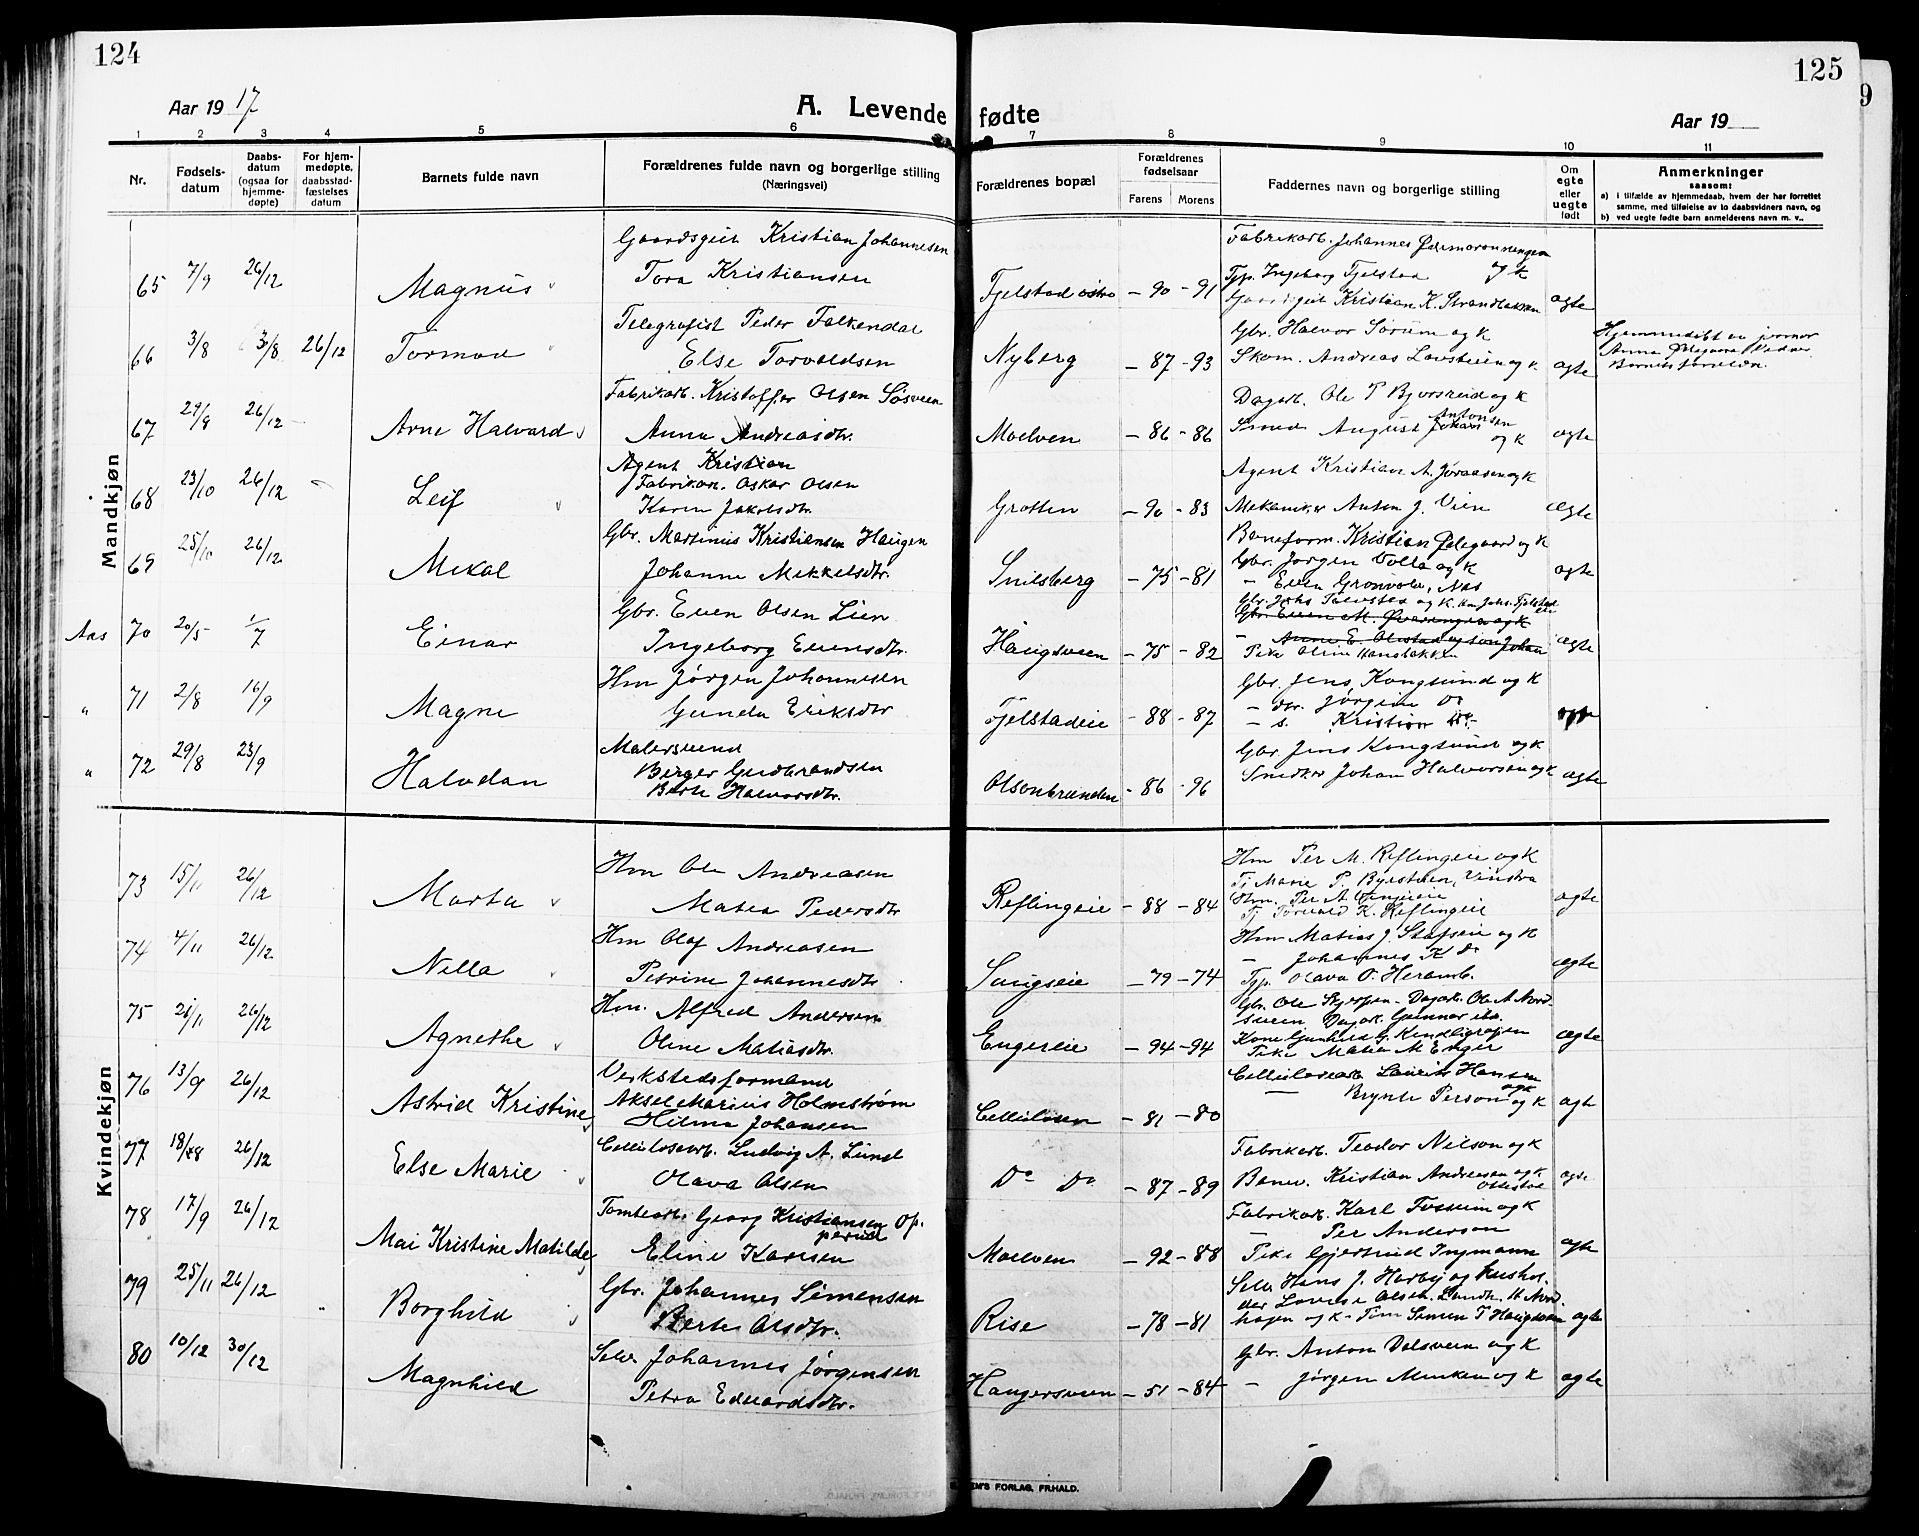 124
125
Aar 1917
A. Levende fødte
Aar 19
1 2 3 4 5 6 7 8 9 10 11
Nr.
Fødsels-
datum
Daabs-
datum
(ogsaa for
hjemme-
døpte)
For hjem-
medøpte,
daabsstad-
fæstelses
datum
Barnets fulde navn
Forældrenes fulde navn og borgerlige stilling
(Næringsvei)
Forældrenes bopæl
Forældrenes
fødselsaar
Farens Morens
Faddernes navn og borgerlige stilling
Om
egte
eller
uegte
født
Anmerkninger
saasom:
a) i tilfælde av hjemmedaab, hvem der har forrettet
samme, med tilføielse av to daabsvidners navn, og
b) ved uegte fødte barn anmelderens navn m. v..
Mandkjøn
65 7/9 26/12 Magnus
Gaardsgut Kristian Johannesen
Tora Kristiansen
Fjelstad østre – 90 – 91
Fabrikarb. Johannes
og K
Typ. Ingeborg Fjelstad
Gaardsgut Kristian K. Strandbakken
ægte
66 3/8 3/8 26/12 Tormod
Telegrafist Peder Falkendal
Else Torvaldsen
Nyberg – 87 – 93
Gbr. Halvor Sørum og K
Skom. Andreas Løvstuen og K
ægte
Hjemmedøbt av jormor
Anna Ødegaard
67 29/9 26/12 – Arne Halvard
Fabrikarb. Kristoffer Olsen Søsveen
Anna Andreasdtr.
Moelven – 86 – 86
Dagarb. Ole P Bjørsrud og K
Smed August Johan Antonsen
og K
ægte
68 23/10 26/12 – Leif
Agent Kristian
Fabrikarb. Oskar Olsen
Karen Jakobsdtr.
Grotten – 90 – 83
Agent Kristian A. Joraasen og K
Mekaniker Anton J. Vien
ægte
69 25/10 26/12 Mikal
Gbr. Martinius Kristiansen Haugen
Johanne Mikkelsdtr.
Snilsberg – 75 – 81
Baneform. Kristian Ødegaard og K
Gbr. Jørgen Volla og K
– Even Grønvold, Næs
ægte
Aas 70 20/5 1/7 Einar
Gbr. Even Olsen Lien
Ingeborg Evensdtr.
Haugsveen – 75 – 82
Gbr. Johs og K. Hm Johs. Fjelstad
Gbr. Even M. og K
– Anne E. Olestad og søn Johan
Pike Oline Hansbakken
ægte
" 71 2/8 16/9 Magne
Hm Jørgen Johannesen
Gunda Eriksdtr
Fjelstadeie – 88 – 87
Gbr. Jens Kongsund og K
– dtr. Jørgine Do
– s. Kristian Do –
ægte
" 72 29/8 23/9 Halvdan
Malersvend
Birger Gudbrandsen
Berte Halvorsdtr.
Olsonbrunden – 86 – 96
Gbr Jens Kongsund og K
Snedker Johan Halvorsen og K
ægte
Kvindekjøn
73 15/11 26/12 Marta
Hm Ole Andreasen
Matea Pedersdtr
Reflingeie – 88 – 84
Hm Per M. Reflingeie og K
Tj Marie P. Byestuen, Vinstra
Hm. Per A
Tj Torvald K. Reflingeie
ægte
74 4/11 26/12 Nella
Hm Olaf Andreasen
Petrine Johannesdtr
Saugseie – 79 – 74
Hm Matias J. Stafseie og K
– Johannes K do
Typ. Olava O. Heramb.
ægte
75 21/11 26/12 Agnethe
Hm. Alfred Andersen
Oline Matiasdtr.
Engereie – 94 – 94
Gbr. Ole – Dagarb. Ole A Nord-
sveen Dagarb. Gunnar ibd.
Kone Gunhild G. Kindligrafen
Pike Matea M Enger
ægte
76 13/9 26/12 Astrid Kristine
Verkstedsformand
Aksel Marius Holmstrøm
Hilma Johansen
Cellulosen – 81 – 80
Cellulosearb Laurits Hansen
og K
– Brynte Person og K
ægte
77 18/8 26/12 Else Marie
Cellulosearb. Ludvig A. Lund
Olava Olsen
Do Do – 87 – 89
Fabrikarb. Teodor Nilson og K
Banev. Kristian Andreasen og K.
Ottestad
ægte
78 17/9 26/12 Mai Kristine Matilde
Tomtearb. Georg Kristiansen Op-
perud
Eline Karlsen
Moelven – 92 – 88
Fabrikarb. Karl Fossum og K
– Per Anderson
Pike Gjertrud Ingmann
ægte
79 25/11 26/12 Borghild
Gbr. Johannes Simensen
Berte Olsdtr.
Rise – 78 – 81
Selv. Hans J. Harby og hushol-
der Lovise Olsen. Landh. H Nord-
hagen og K – Tim Simen T Haugsveen
ægte
80 10/12 30/12 Magnhild
Selv. Johannes Jørgensen
Petra Edvardsdtr.
Haugersveen – 51 – 84
Gbr. Anton Dalsveen og K
– Jørgen Menken og K
ægte
'S FORLAG, FR.HALD.